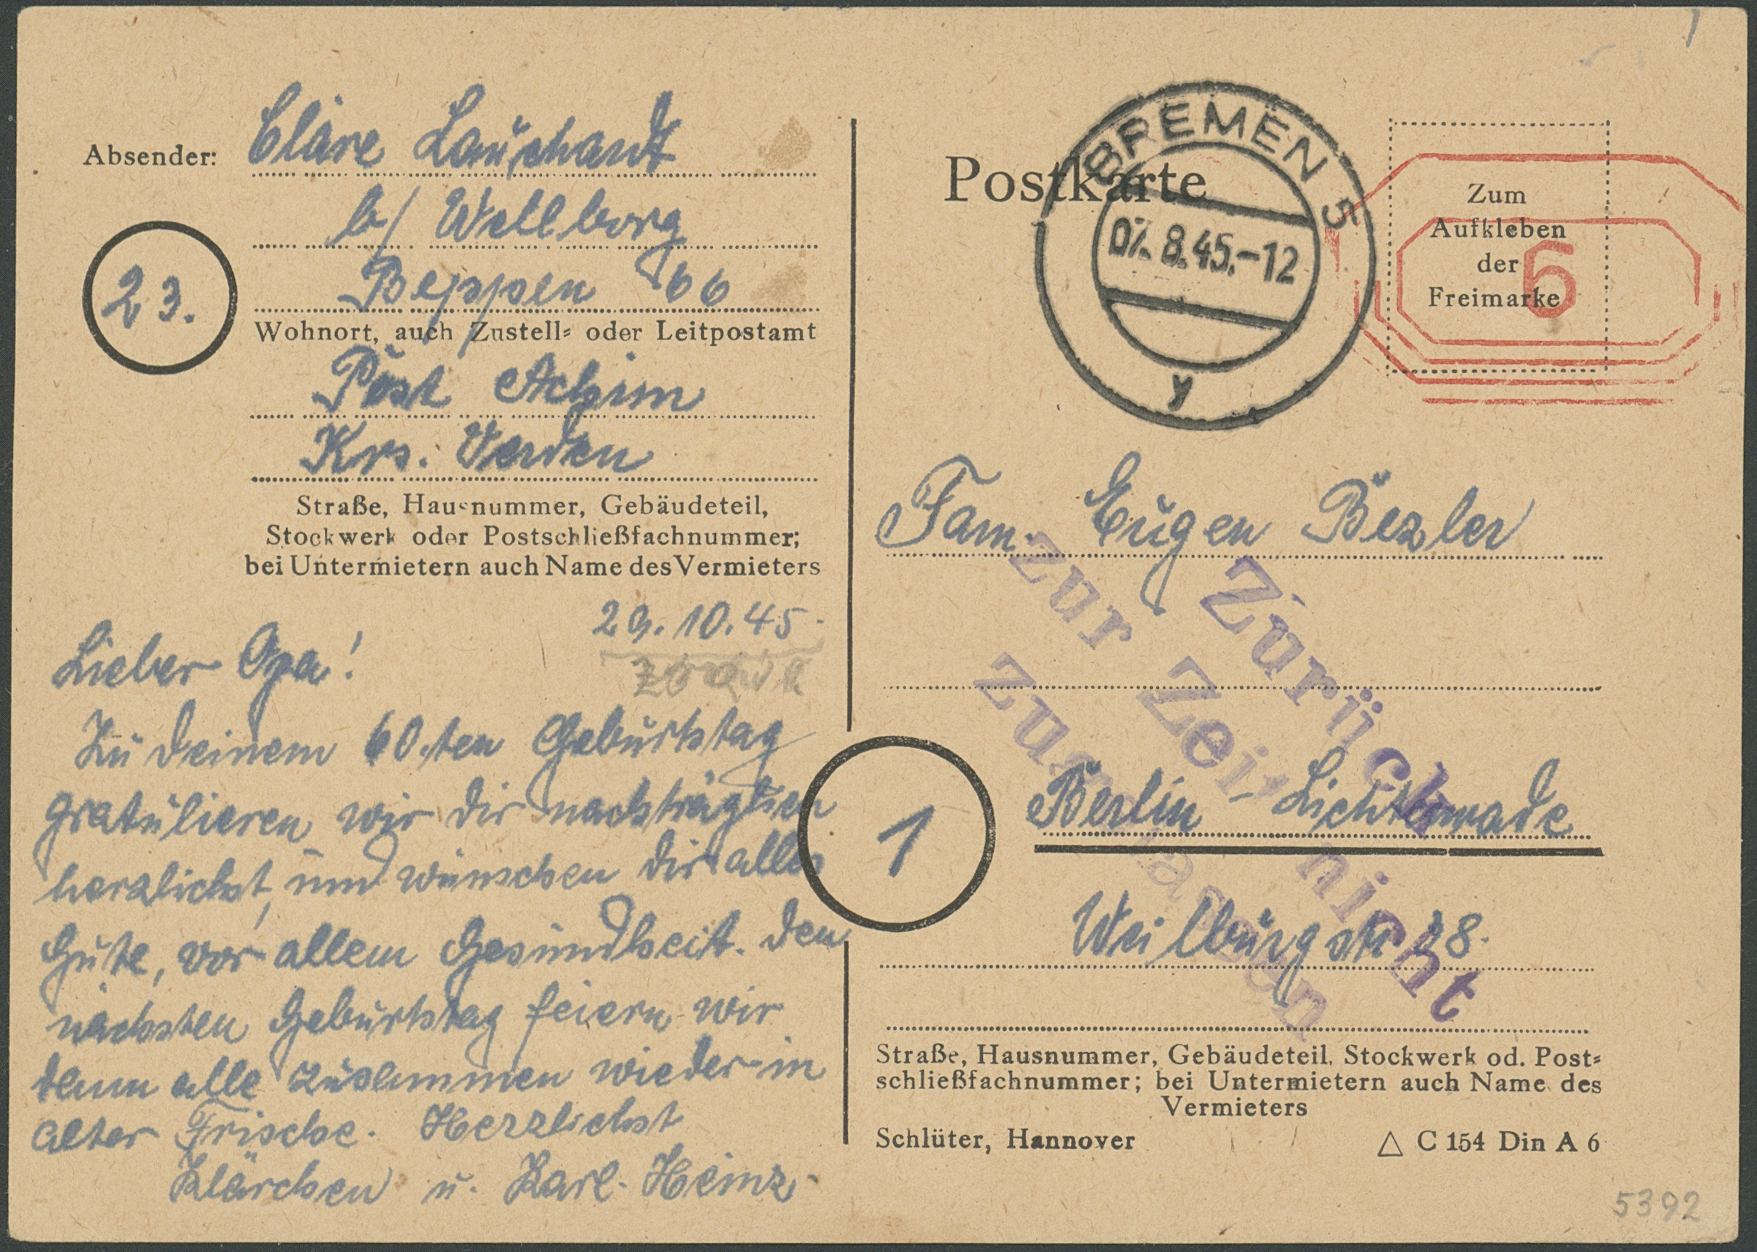 Absender: Cläre Lauchardt
b/ Wellborg
23.
Beppen 66
Wohnort, auch Zustell- oder Leitpostamt
Post Achim
Krs. Verden
Straße, Hausnummer, Gebäudeteil,
Stockwerk oder Postschließfachnummer;
bei Untermietern auch Name des Vermieters
29.10.45.
Lieber Opa!
Zu deinem 60.ten Geburtstag
gratulieren wir dir nachträglich
herzlichst, und wünschen dir alles
Gute, vor allem Gesundheit. Den
nächsten Geburtstag feiern wir
dann alle zusammen wieder in
alter Frische. Herzlichst
Klärchen u. Karl-Heinz.
Postkarte
BREMEN 5
07.8.45.-12
y
Zum
Aufkleben
der
Freimarke
6
Fam. Eugen Bezler
Zurück
zur Zeit nicht
zugelassen
1
Berlin-Lichtenrade
Weilburgstr 28.
Straße, Hausnummer, Gebäudeteil, Stockwerk od. Post-
schließfachnummer; bei Untermietern auch Name des
Vermieters
Schlüter, Hannover
△ C 154 Din A 6
5392